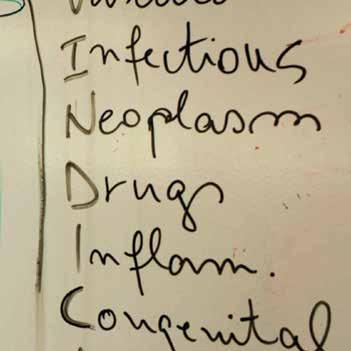 Infectious
Neoplasm
Drugs
Inflam.
Congenital